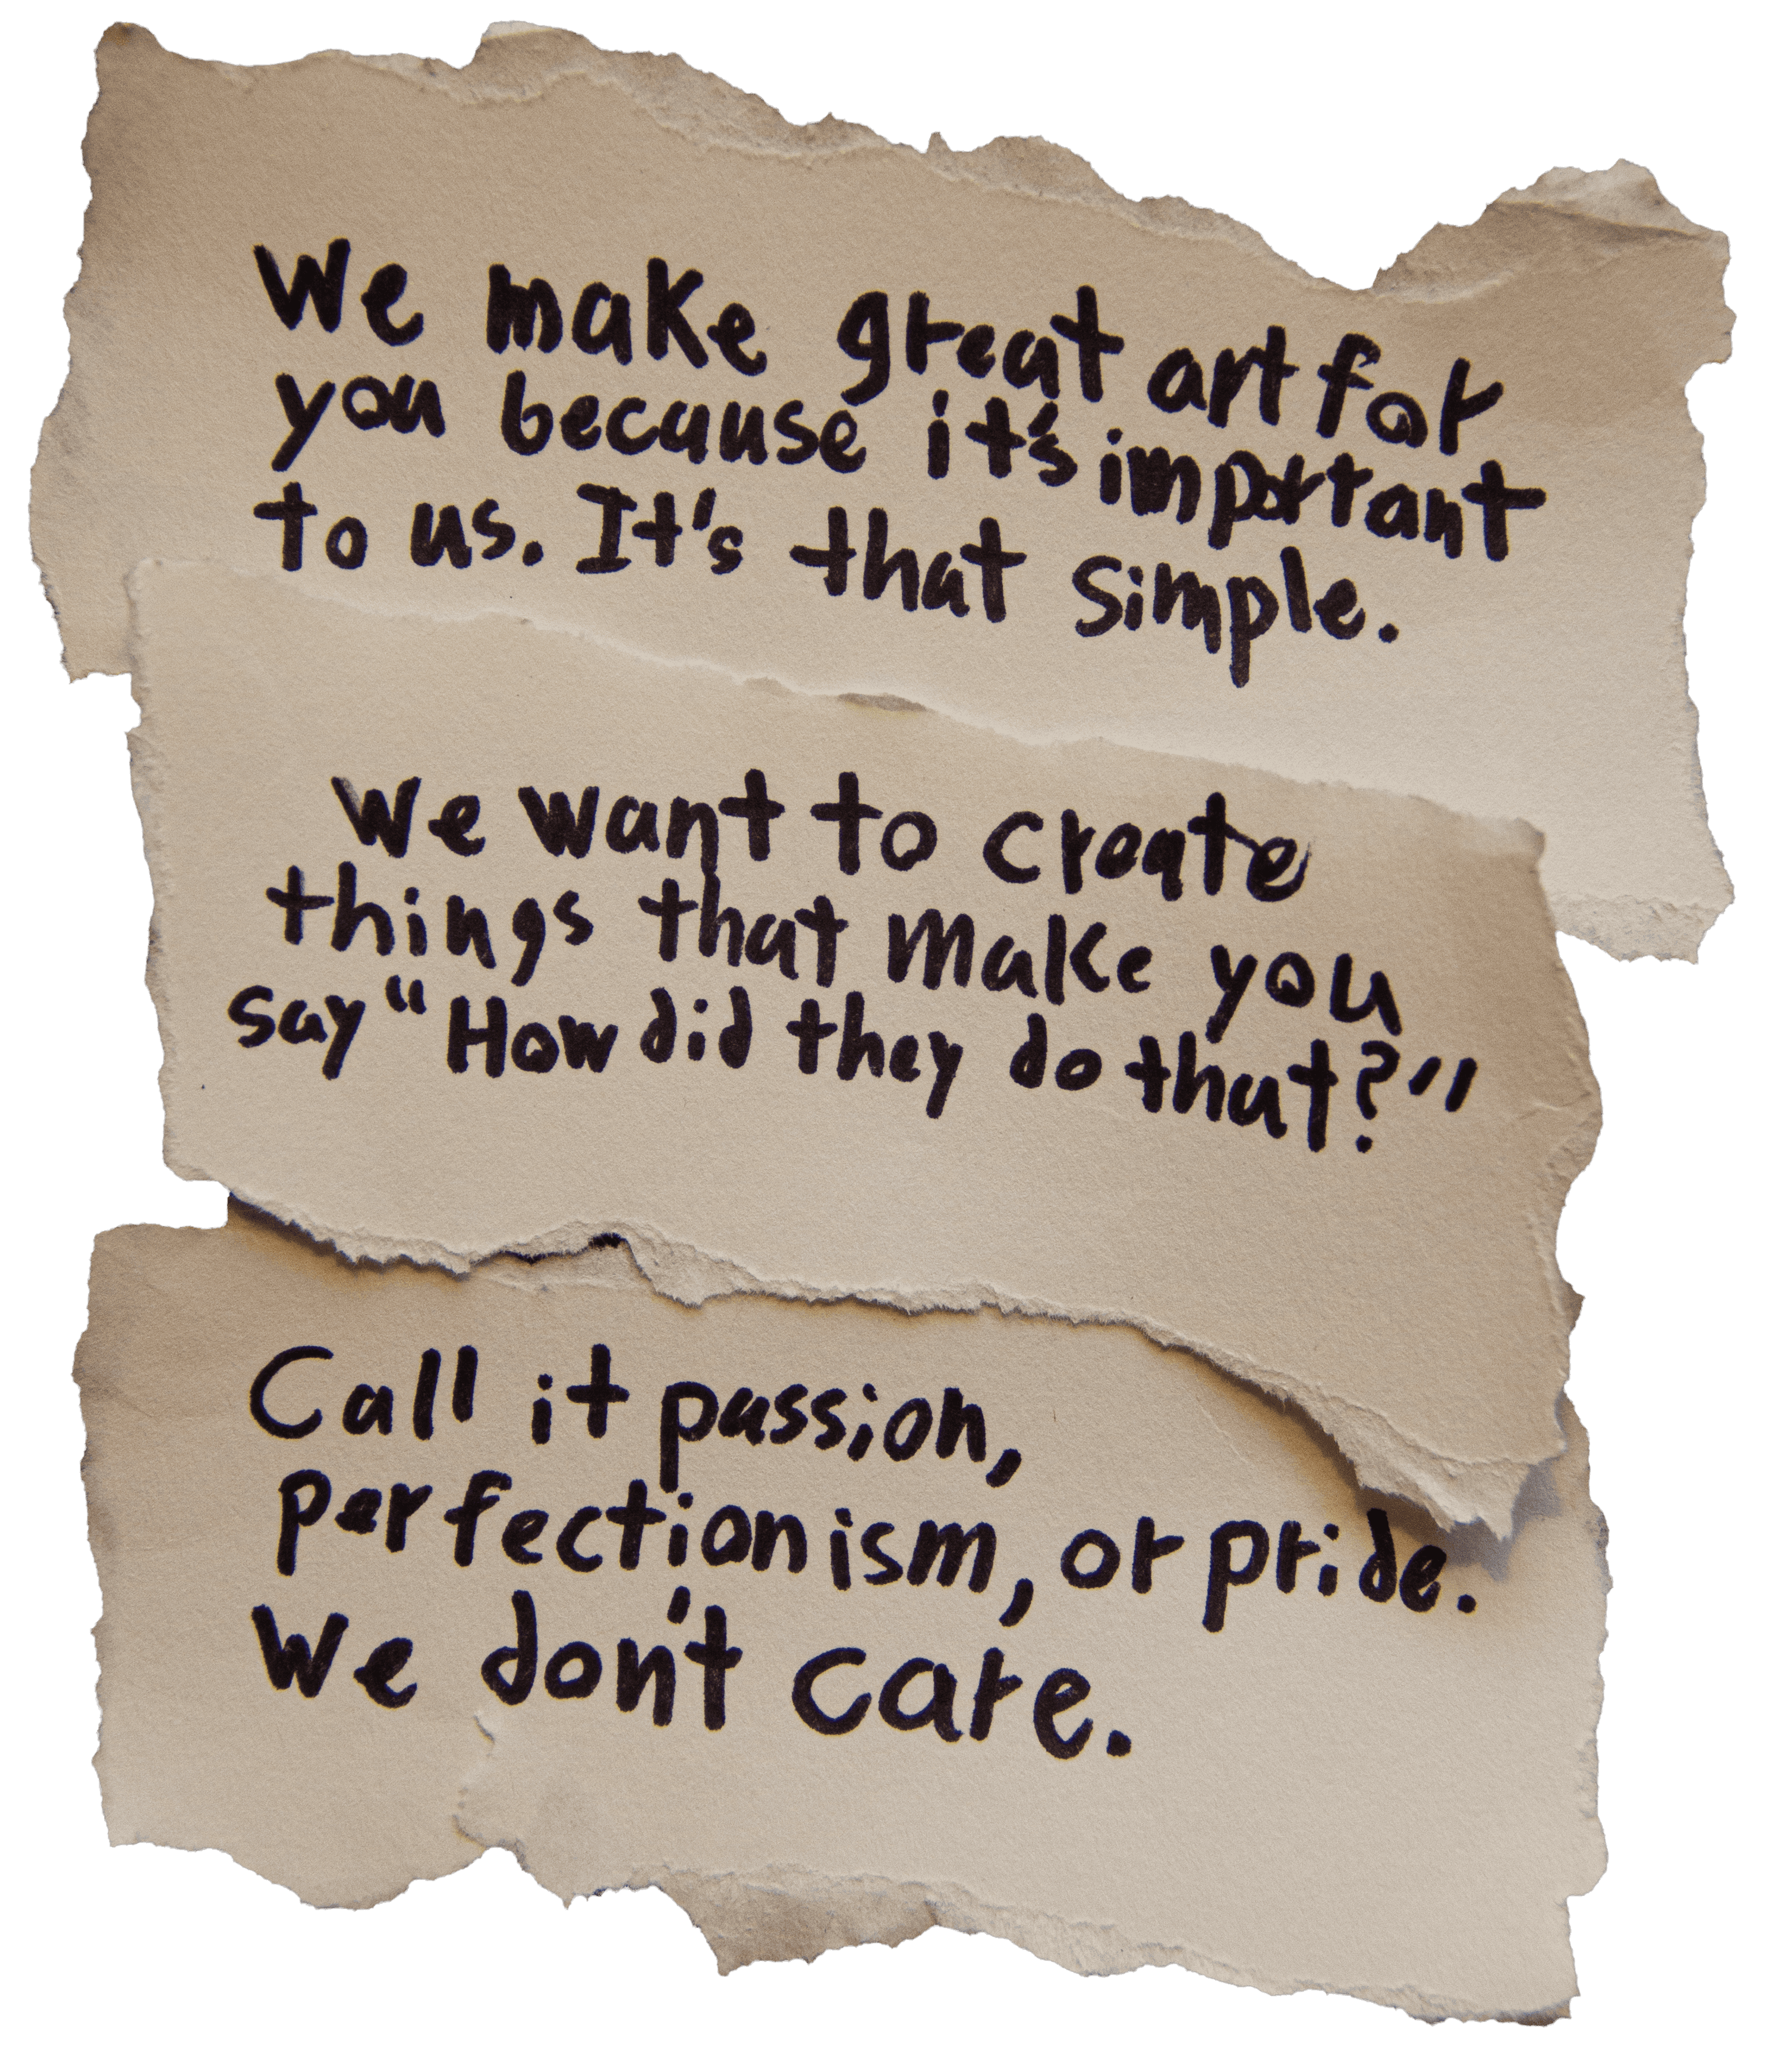 We make great art for
you because it's important
to us. It's that simple.
We want to create
things that make you
say "How did they do that?"
Call it passion,
perfectionism, or pride.
We don't care.